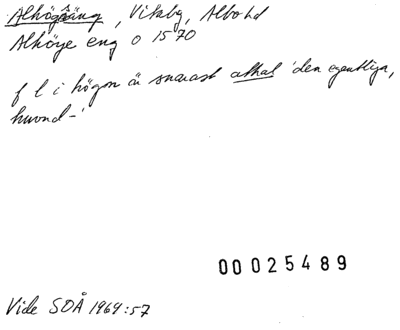 Alhögsäng, Vitaby, Albo hd
Alhöye eng o 1570
f l i högon är snarast athal 'den egentliga,
huvud-'
00025489
Vide SOÅ 1964:57